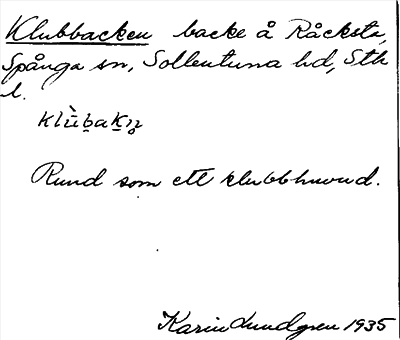 Klubbacken backe å Råcksta,
Spånga sn, Sollentuna hd, Sth
l.
klù̄b̲ak̲n̥
Rund som ett klubbhuvud.
Karin Lundgren 1935